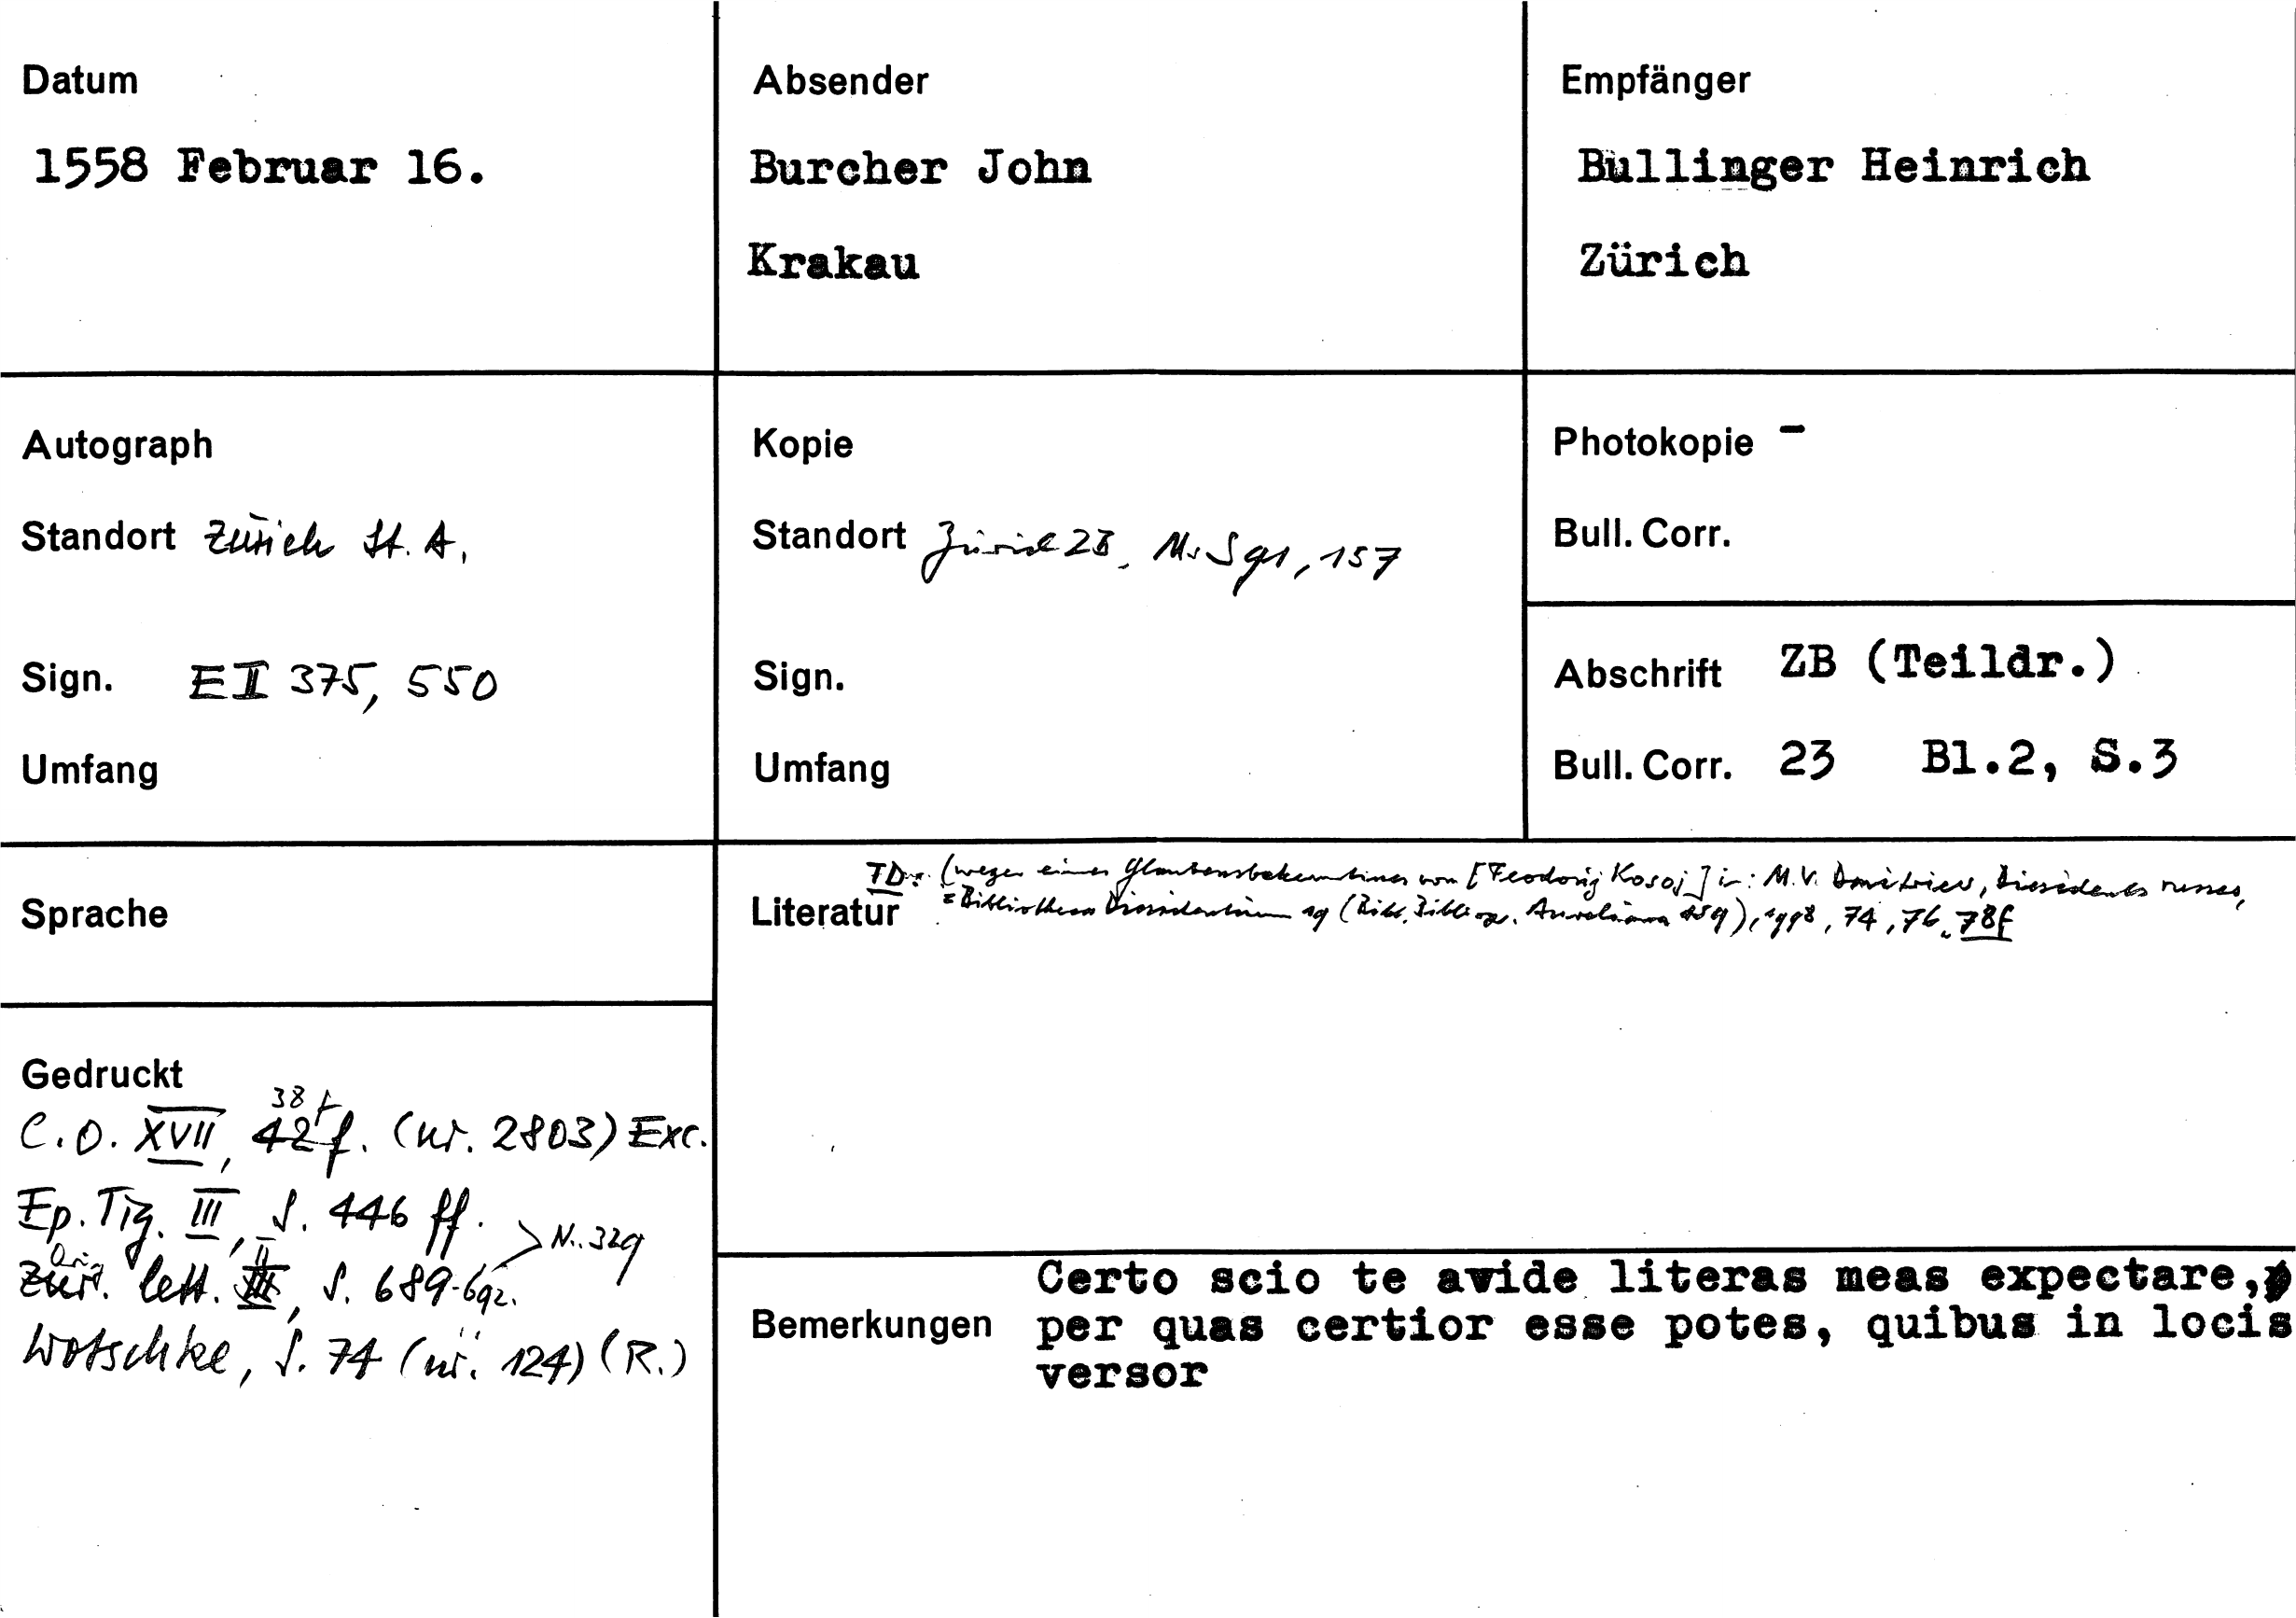 Datum
1558 Februar 16.
Absender
Burcher John
Krakau
Empfänger
Bullinger Heinrich
Zürich
Autograph
Standort Zürich St. A.
Sign. E II 375, 550
Umfang
Kopie
Standort Zürich ZB, Ms S 91, 157
Sign.
Umfang
Photokopie -
Bull. Corr.
Abschrift ZB (Teildr.)
Bull. Corr. 23 Bl.2, S.3
Sprache
Literatur
TD: (wegen eines Glaubensbekenntnisses von [Feodorij Kosoj] in: M.V. Dmitriev, Dissidents russes,
= Bibliotheca Dissidentium 19 (Bibl. Bibliogr. Aureliana), 1998, 74, 76, 78f
Gedruckt
38 f
C.O. XVII, 42 f. (nr. 2803) Exc.
Ep. Tig. III, S. 446 ff.
N. 329
Orig. lett. II, S. 689-692.
Wotschke, S. 74 (nr. 124) (R.)
Bemerkungen
Certo scio te avide literas meas expectare,
per quas certior esse potes, quibus in locis
versor